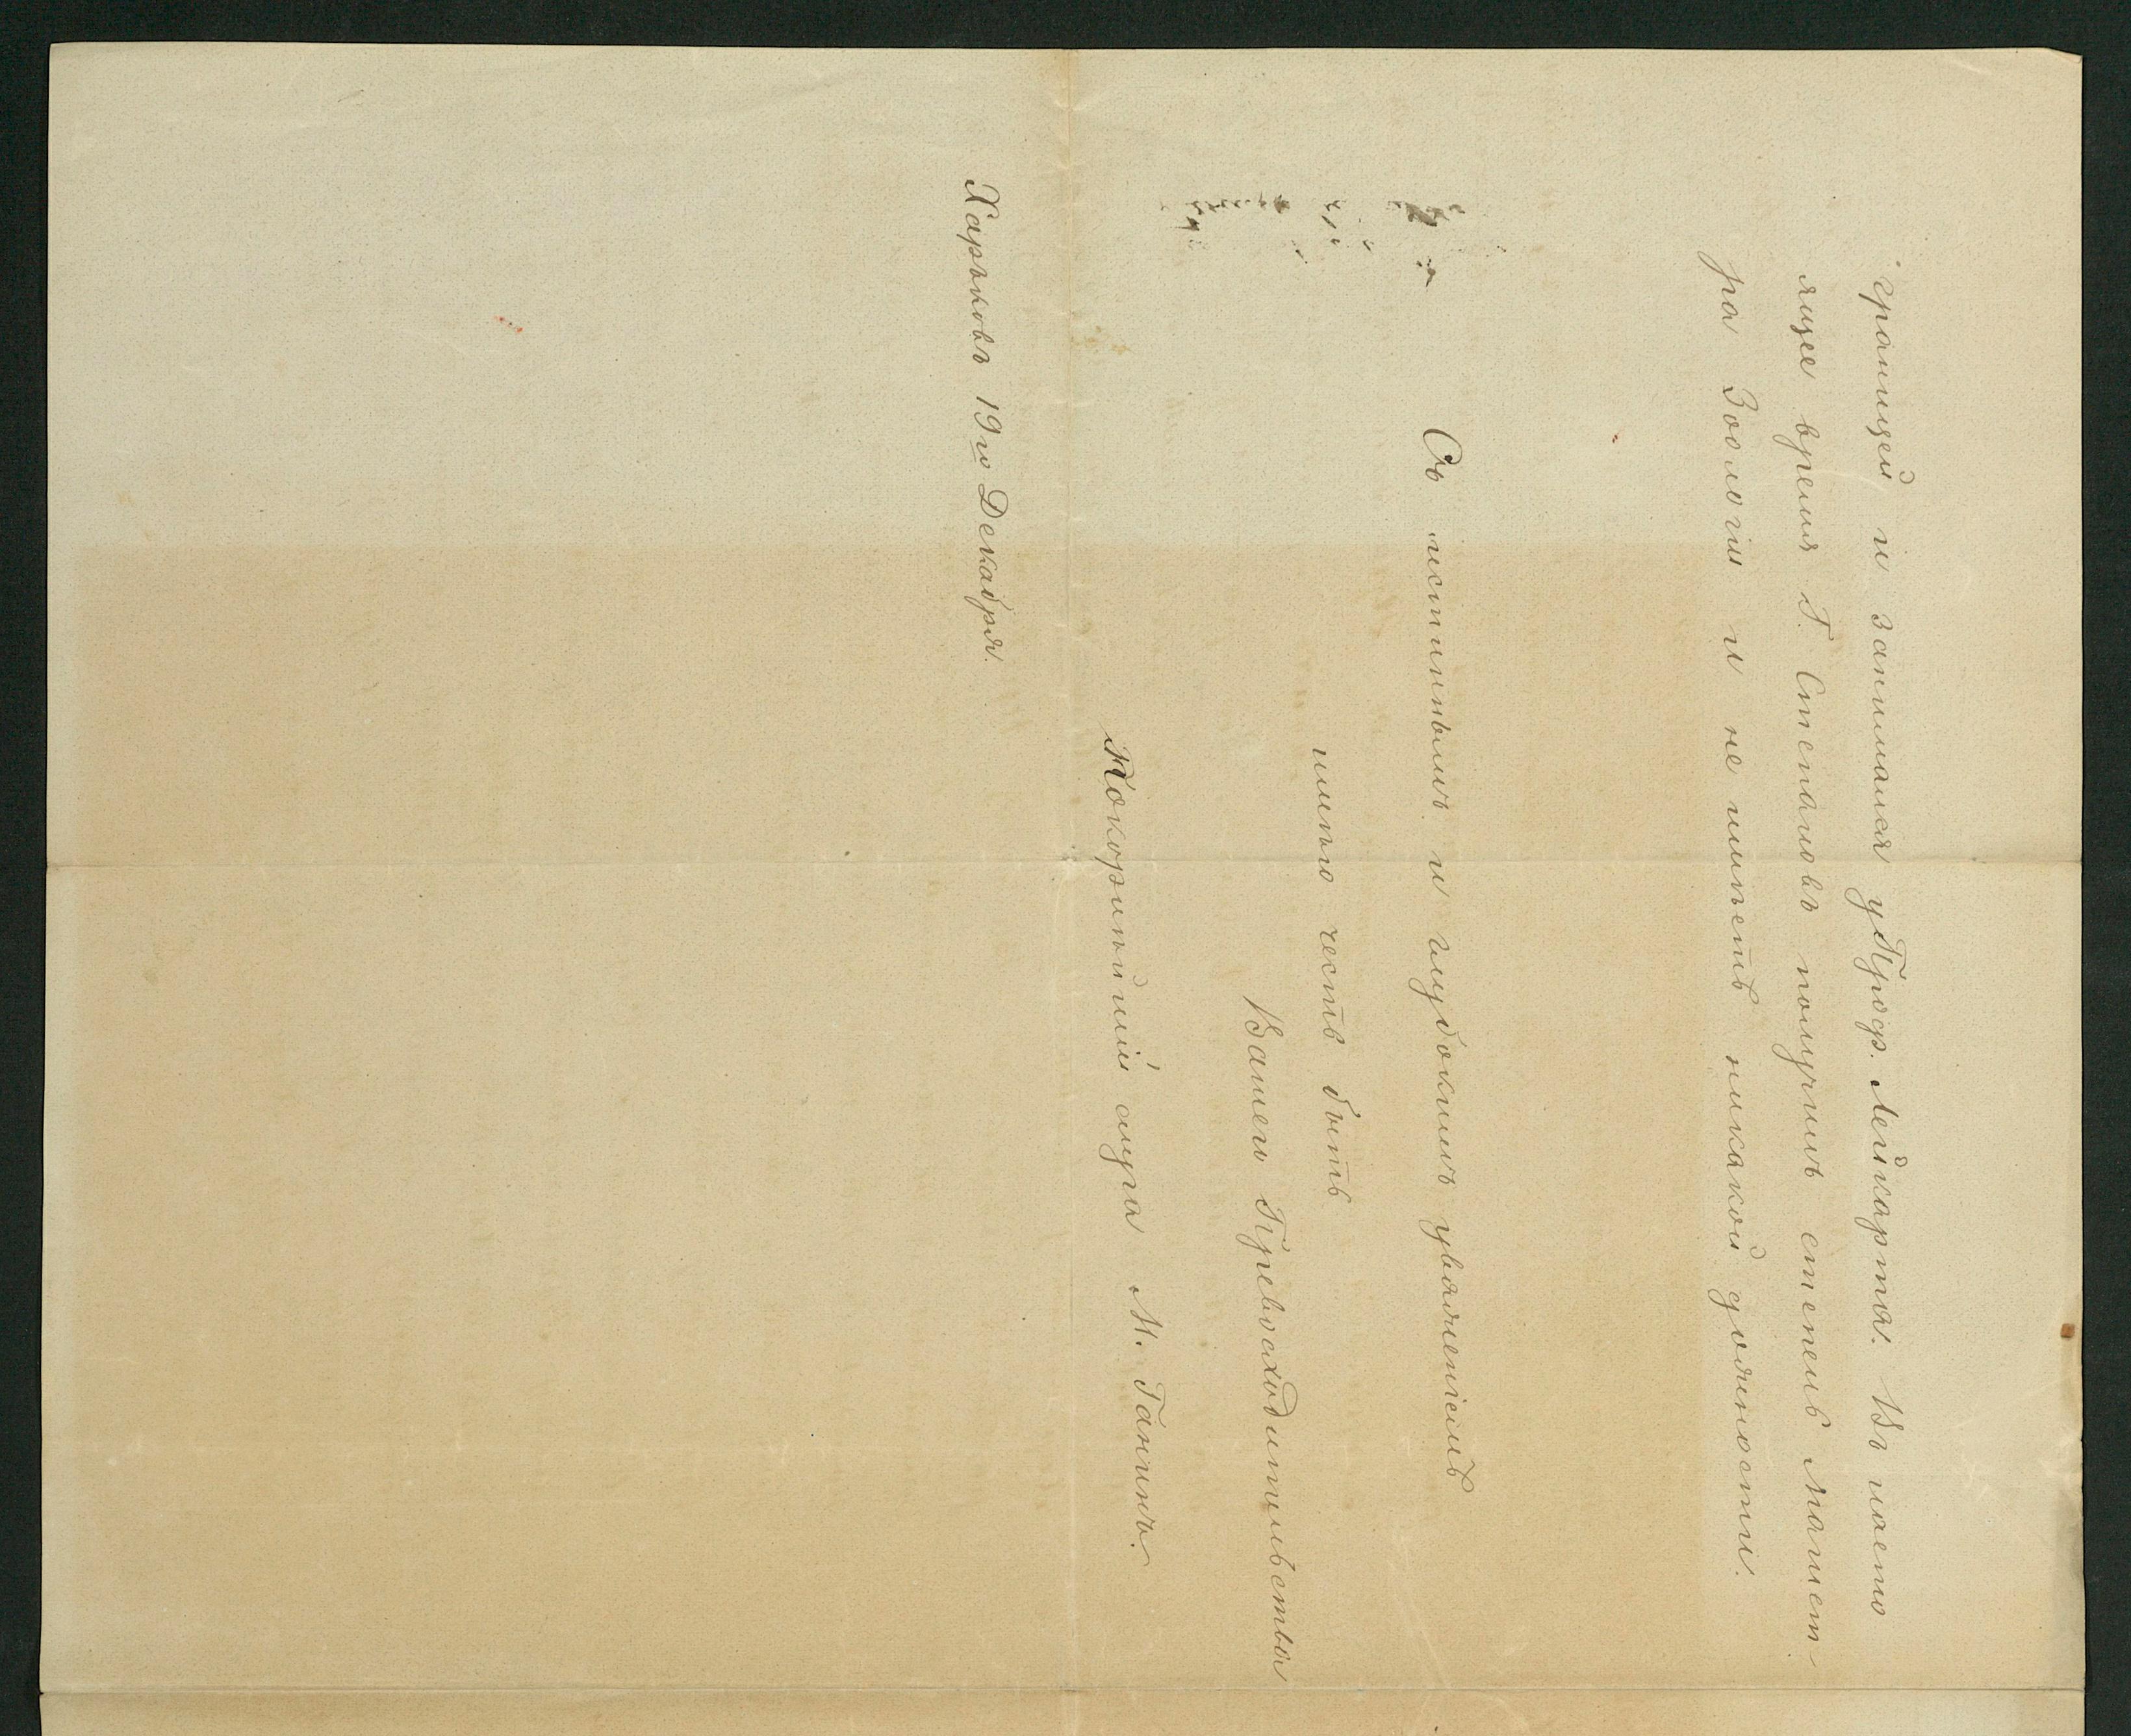 границей и занимался у Проф. Лейкарта. Въ насто
ящее время Г. Степановъ получилъ степень Магист-
ра Зоологіи и не имѣетъ никакой должности.
Съ истиннымъ и глубокимъ уваженіемъ
имѣю честь быть
Вашего Превосходительства
Покорнѣйшій слуга М. Ганинъ.
Харьковъ 19го Декабря.